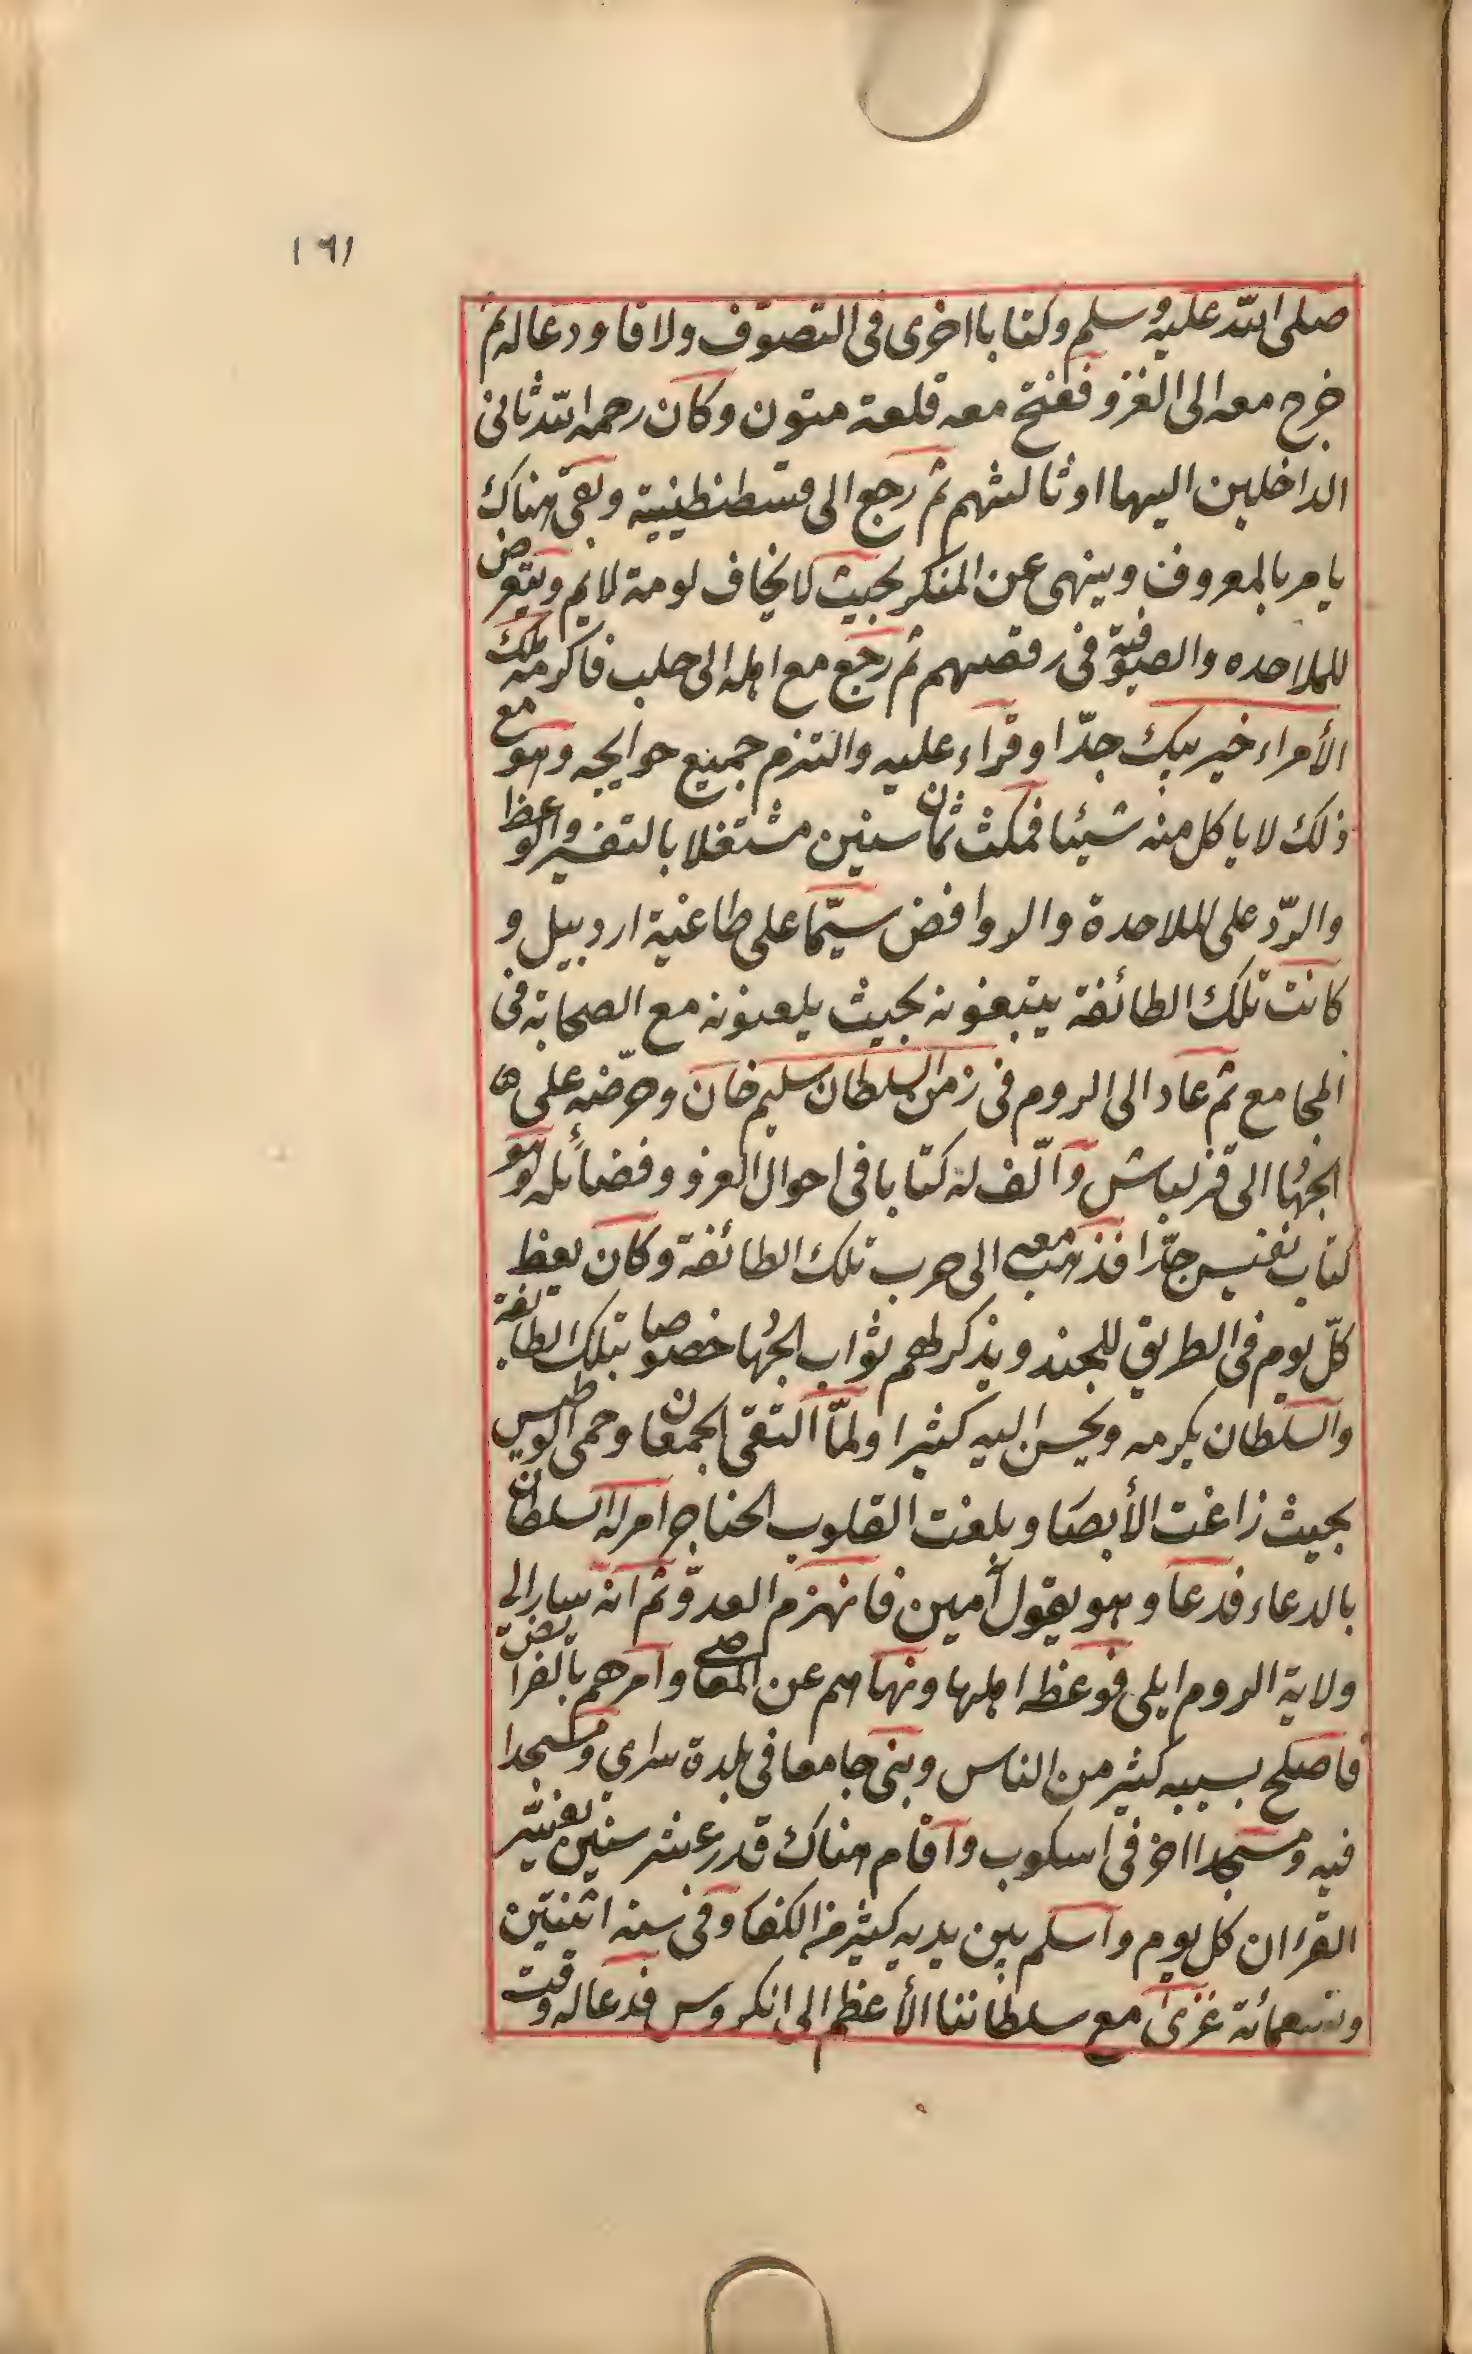 ١٦١
صلى الله عليه وسلم وكتابا اخرى فى التصوّف ولاقا ودعا له ثم
خرج معه الى الغزو ففتح معه قلعة متون وكان رحمه الله ثانى
الداخلين اليها او ثالثهم ثم رجع الى قسطنطينية وبقى هناك
يامر بالمعروف وينهى عن المنكر بحيث لا يخاف لومة لائم ويتعرض
للملاحده والصوفيّة فى رقصهم ثم رجع مع اهله الى حلب فاكرمه ملك
الأمراء خير بيك جدّا وقراء عليه والتزم جميع حوايجه وهو مع
ذلك لا ياكل منه شيئا فمكث ثمان سنين مشتغلا بالتفسير والوعظ
والردّ على الملاحدة والروافض سيّما على طاغية اردبيل و
كانت تلك الطائفة يتبعونه بحيث يلعنونه مع الصحابة فى
المجامع ثم عاد الى الروم فى زمن السلطان سليم خان وحرّضه على ها
الجهُا الى قزلباش وآلّف له كتابا فى احوال الغزو وفضائله وهو
كتاب نفيس جدّا فذهب معه الى حرب تلك الطائفة وكان يعظ
كلّ يوم فى الطريق للجند ويذكر لهم ثواب الجهُا خصوصا بتلك الطائفة
والسلطان يكرمه ويحسن اليه كثيرا ولمّا التقى الجمعان وحمى الوطيس
بحيث زاغت الأبصا وبلغت القلوب الحناجر امر له السلطان
بالدعاء فدعا وهو يقول آمين فانهزم العدوّ ثم انه سار الى
ولاية الروم ايلى فوعظه اهلها ونهاهم عن المعاصى وامرهم بالفرائض
فاصلح بسببه كثير من الناس وبنى جامعا فى بلدة سراي ومسجدا
فيه ومسجدا اخر فى اسكوب وآقام هناك قدر عشر سنين يفسّر
القران كل يوم وآسلم بين يديه كثير من الكفا وفى سنه اثنتين
وتسعمائة غزى مع سلطاننا الأعظم الى انكروس فدعا له وقت